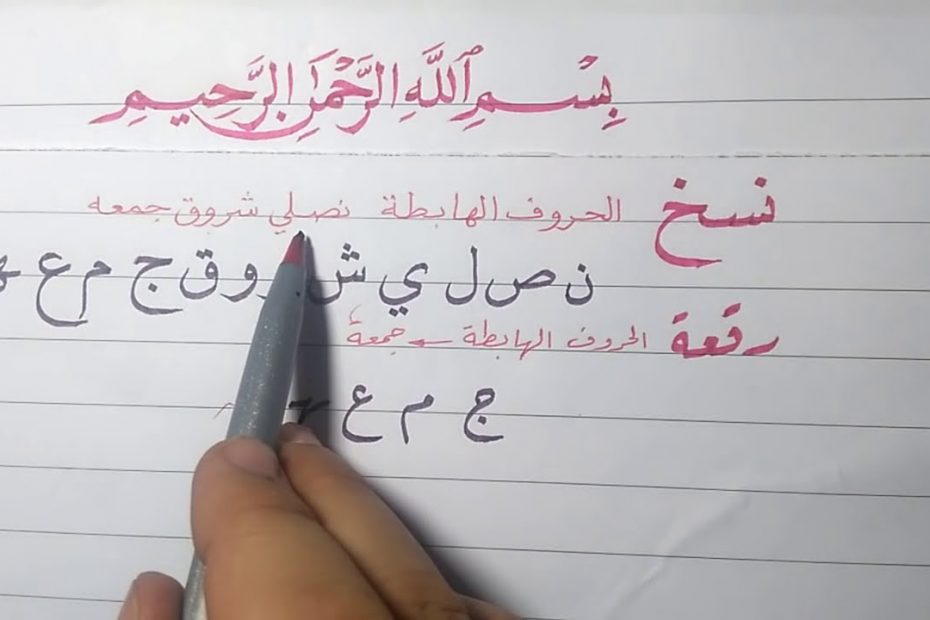 بِسْمِ ٱللَّهِ الرَّحْمَٰنِ الرَّحِيمِ
نسخ الحروف الهابطة نصلي شروق جمعه
ن ص ل ي ش ر و ق ج م ع ه
رقعة الحروف الهابطة ← جمعة
ج م ع ه